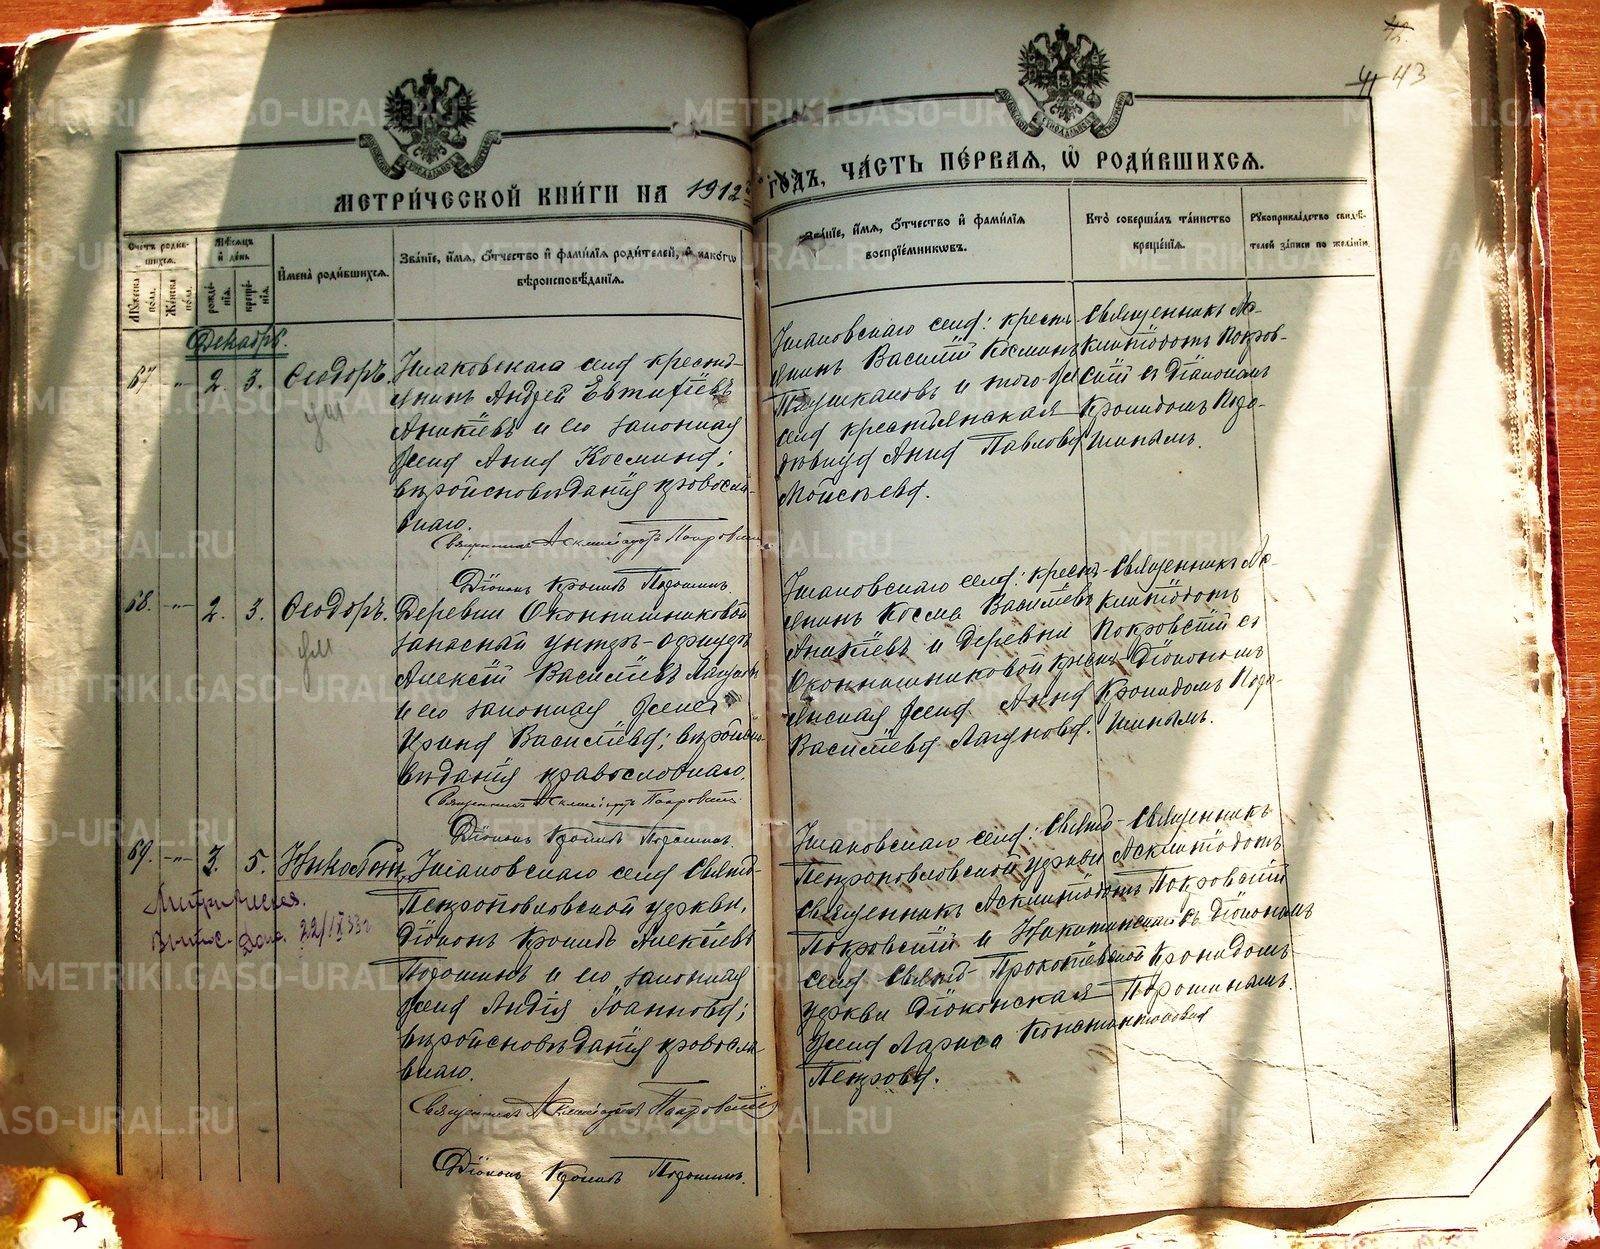 42.
41 43
МЕТРИ́ЧЕСКОЙ КНИ́ГИ НА 1912й ГО́ДЪ, ЧА́СТЬ ПЕ́РВАЯ, Ѡ҆ РОДИ́ВШИХСЯ.
Сче́тъ роди́в-
шихся.
Мꙋ́жеска по́ла.
Же́нска по́ла.
Мѣ́сяцъ
и҆ де́нь
рожде́-
нїя.
креще́-
нїя.
И҆мена̀ роди́вшихся.
Зва́нїе, и҆́мя, ѻ҆́тчество и҆ фами́лїя роди́телей, и҆ како́гѡ
вѣроисповѣ́данїя.
Зва́нїе, и҆́мя, ѻ҆́тчество и҆ фами́лїя
воспрїе́мникѡвъ.
Кто̀ соверша́лъ та́инство
креще́нїя.
Рꙋкоприкла́дство свидѣ́-
телей за́писи по жела́нїю.
Декабрь.
67. -"- 2. 3. Ѳеодоръ.
ум
Ушаковскаго села крестья-
янинъ Андрей Евтихіевъ
Аникіевъ и его законная
жена Анна Космина;
вѣроисповѣданія православ-
наго.
Священникъ Асклипіодотъ Покровскій
Діаконъ Кронидъ Порошинъ.
Ушаковскаго села: крестья-
янинъ Василій Косминъ
Глушкановъ и того-же
села крестьянская
дѣвица Анна Павлова
Моисѣева.
Священникъ Ас-
клипіодотъ Покров-
скій съ Діакономъ
Кронидомъ Поро-
шинымъ.
68. -"- 2. 3. Ѳеодоръ.
ум
Деревни Оконишниковой
запасный унтеръ-офицеръ
Алексій Василіевъ Лагуновъ
и его законная жена
Ирина Василіева; вѣроиспо-
вѣданія православнаго.
Священникъ Асклипіодотъ Покровскій
Діаконъ Кронидъ Порошинъ.
Ушаковскаго села: кресть-
янинъ Косма Василіевъ
Аникіевъ и деревни
Оконишниковой кресть-
янская жена Анна
Василіева Лагунова.
Священникъ Ас-
клипіодотъ
Покровскій съ
Діакономъ
Кронидомъ Поро-
шинымъ.
69. -"- 3. 5. Никаноръ
Метрическая
Выпис. дана. 22/IX 33г
Ушаковскаго села Свято-
Петропавловской церкви,
Діаконъ Кронидъ Алексіевъ
Порошинъ и его законная
жена Лидія Іоаннова;
вѣроисповѣданія православ-
наго.
Священникъ Асклипіодотъ Покровскій
Діаконъ Кронидъ Порошинъ.
Ушаковскаго села: Свято-
Петропавловской церкви
Священникъ Асклипіодотъ
Покровскій и Никитинскаго
села Свято-Прокопіевской
церкви Діаконская
жена Лариса Константиновна
Петрова.
Священникъ
Асклипіодотъ
Покровскій
съ Діакономъ
Кронидомъ
Порошинымъ.
METRIKI.GASO-URAL.RU